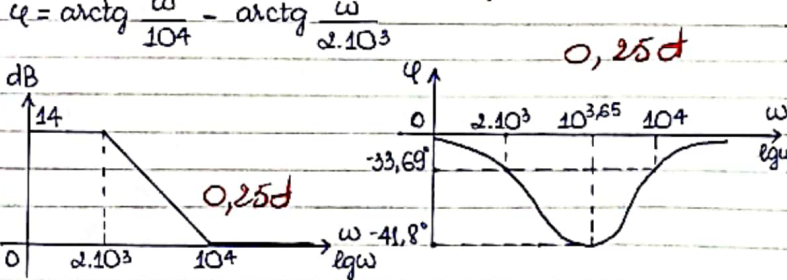 φ = arctg ω/10⁴ - arctg ω/2.10³
0,25đ
dB
14
0,25đ
0
2.10³
10⁴
ω
lgω
φ
0
2.10³
10^3,65
10⁴
ω
lgω
-33,69°
-41,8°